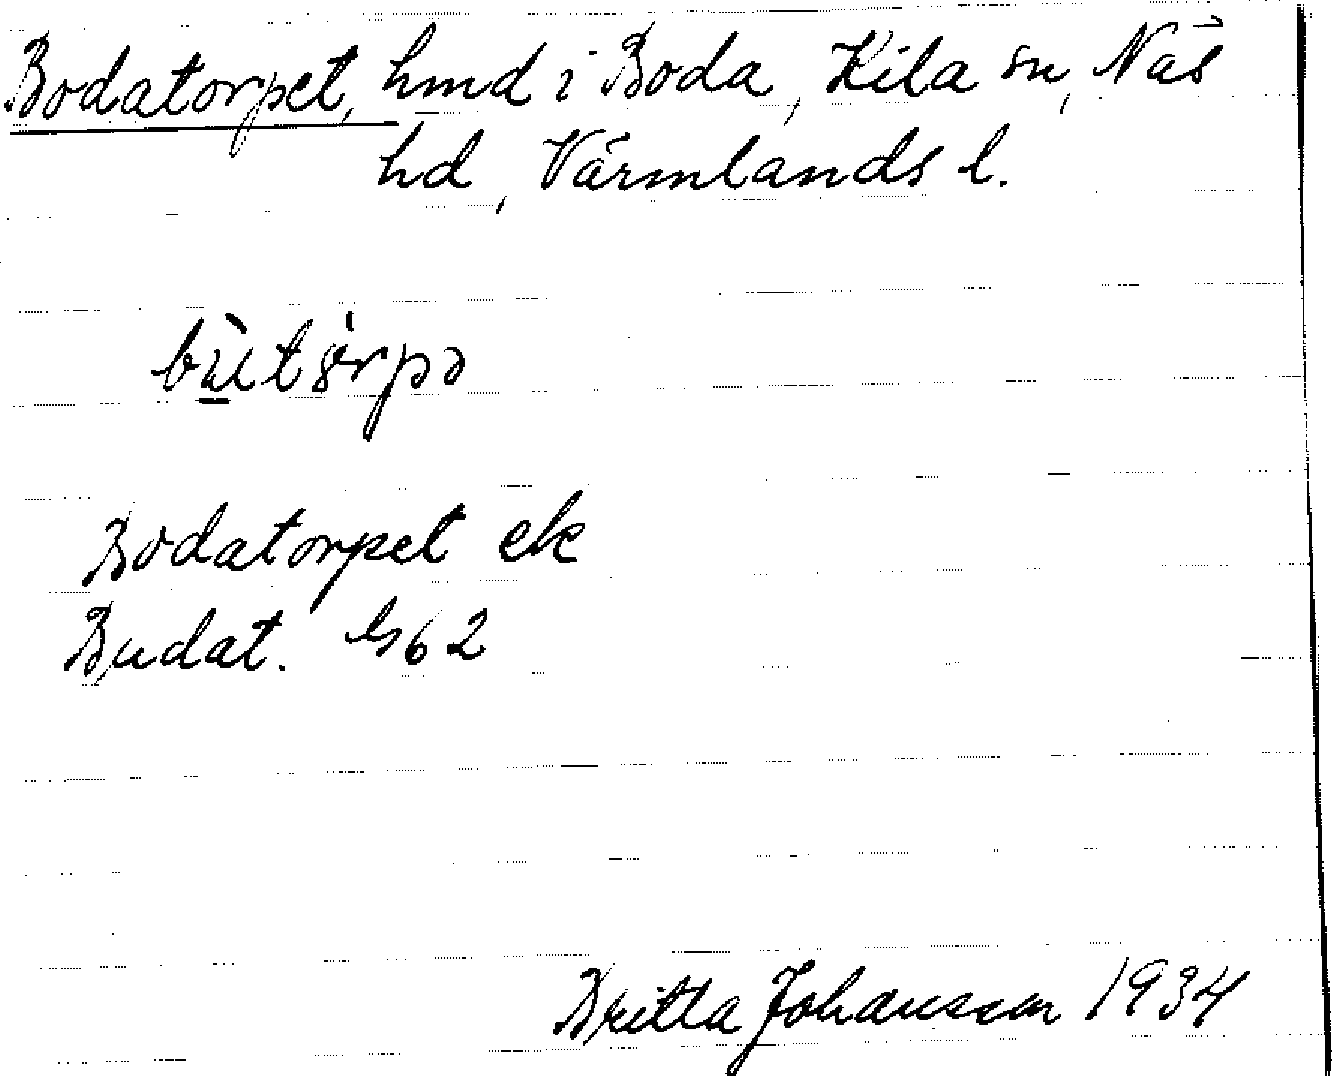 Bodatorpet, hmd i Boda, Kila sn, Näs
hd, Värmlands l.
Bodatorpet ek
Budat. Gs62
Britta Johansson 1934